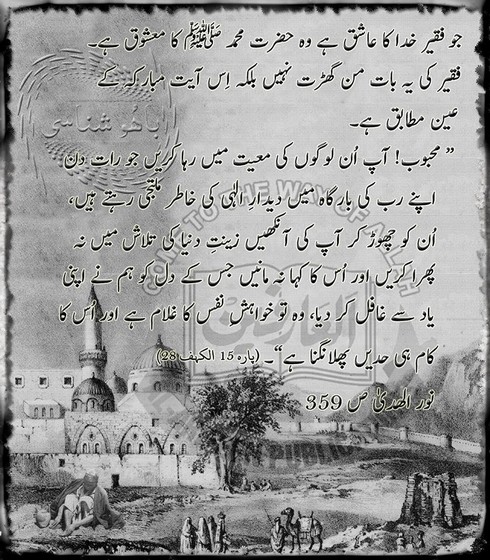 جو فقیر خدا کا عاشق ہے وہ حضرت محمد ﷺ کا معشوق ہے۔
فقیر کی یہ بات من گھڑت نہیں بلکہ اِس آیت مبارکہ کے
عین مطابق ہے۔
”محبوب! آپ اُن لوگوں کی معیت میں رہا کریں جو رات دن
اپنے رب کی بارگاہ میں دیدارِ الٰہی کی خاطر ملتجی رہتے ہیں،
اُن کو چھوڑ کر آپ کی آنکھیں زینتِ دنیا کی تلاش میں نہ
پھرا کریں اور اُس کا کہا نہ مانیں جس کے دل کو ہم نے اپنی
یاد سے غافل کر دیا، وہ تو خواہشِ نفس کا غلام ہے اور اُس کا
کام ہی حدیں پھلانگنا ہے“۔ (پارہ 15 الکہف 28)
نور الھدیٰ ص 359
باھُو شناسی
COME TO THE WAY OF ALLAH
العارفین